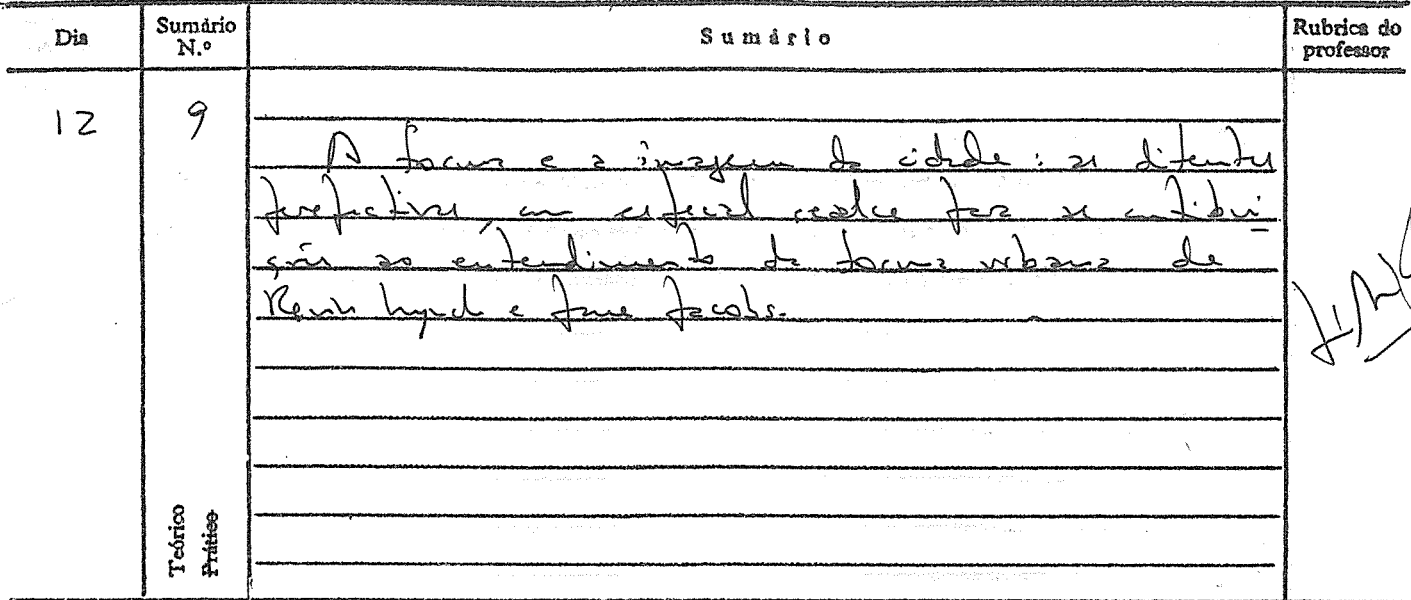 Dia
Sumário N.º
Sumário
Rubrica do professor
12
9
A forma e a imagem da cidade: as diferentes
perspectivas, com especial realce para as contribui-
ções ao entendimento da forma urbana de
Kevin Lynch e Jane Jacobs.
Teórico
Prático